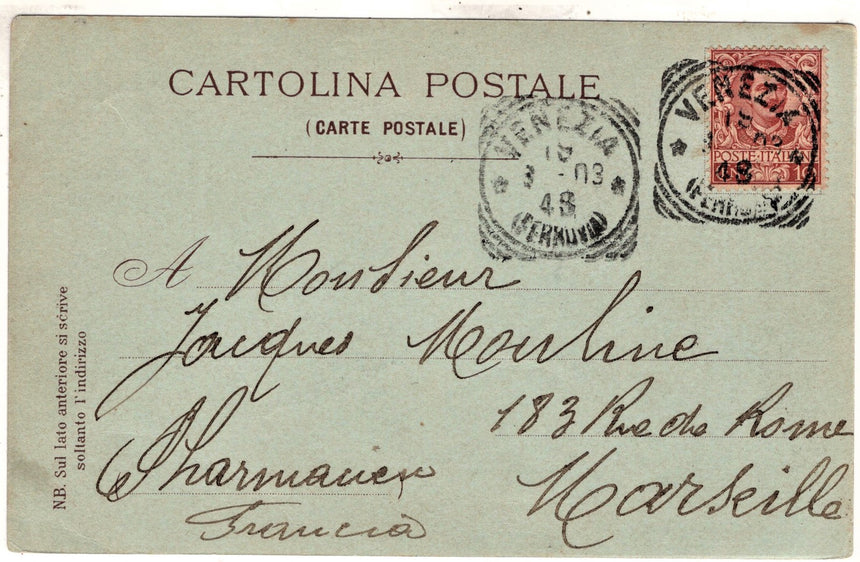 CARTOLINA POSTALE
(CARTE POSTALE)
VENEZIA
18
3 - 03
4S
(FERROVIA)
VENEZIA
18
03
4S
POSTE ITALIANE
10
A Monsieur
Jacques Mouline
183 Rue de Rome
Pharmacien
Marseille
Francia
N.B. Sul lato anteriore si scrive
soltanto l'indirizzo